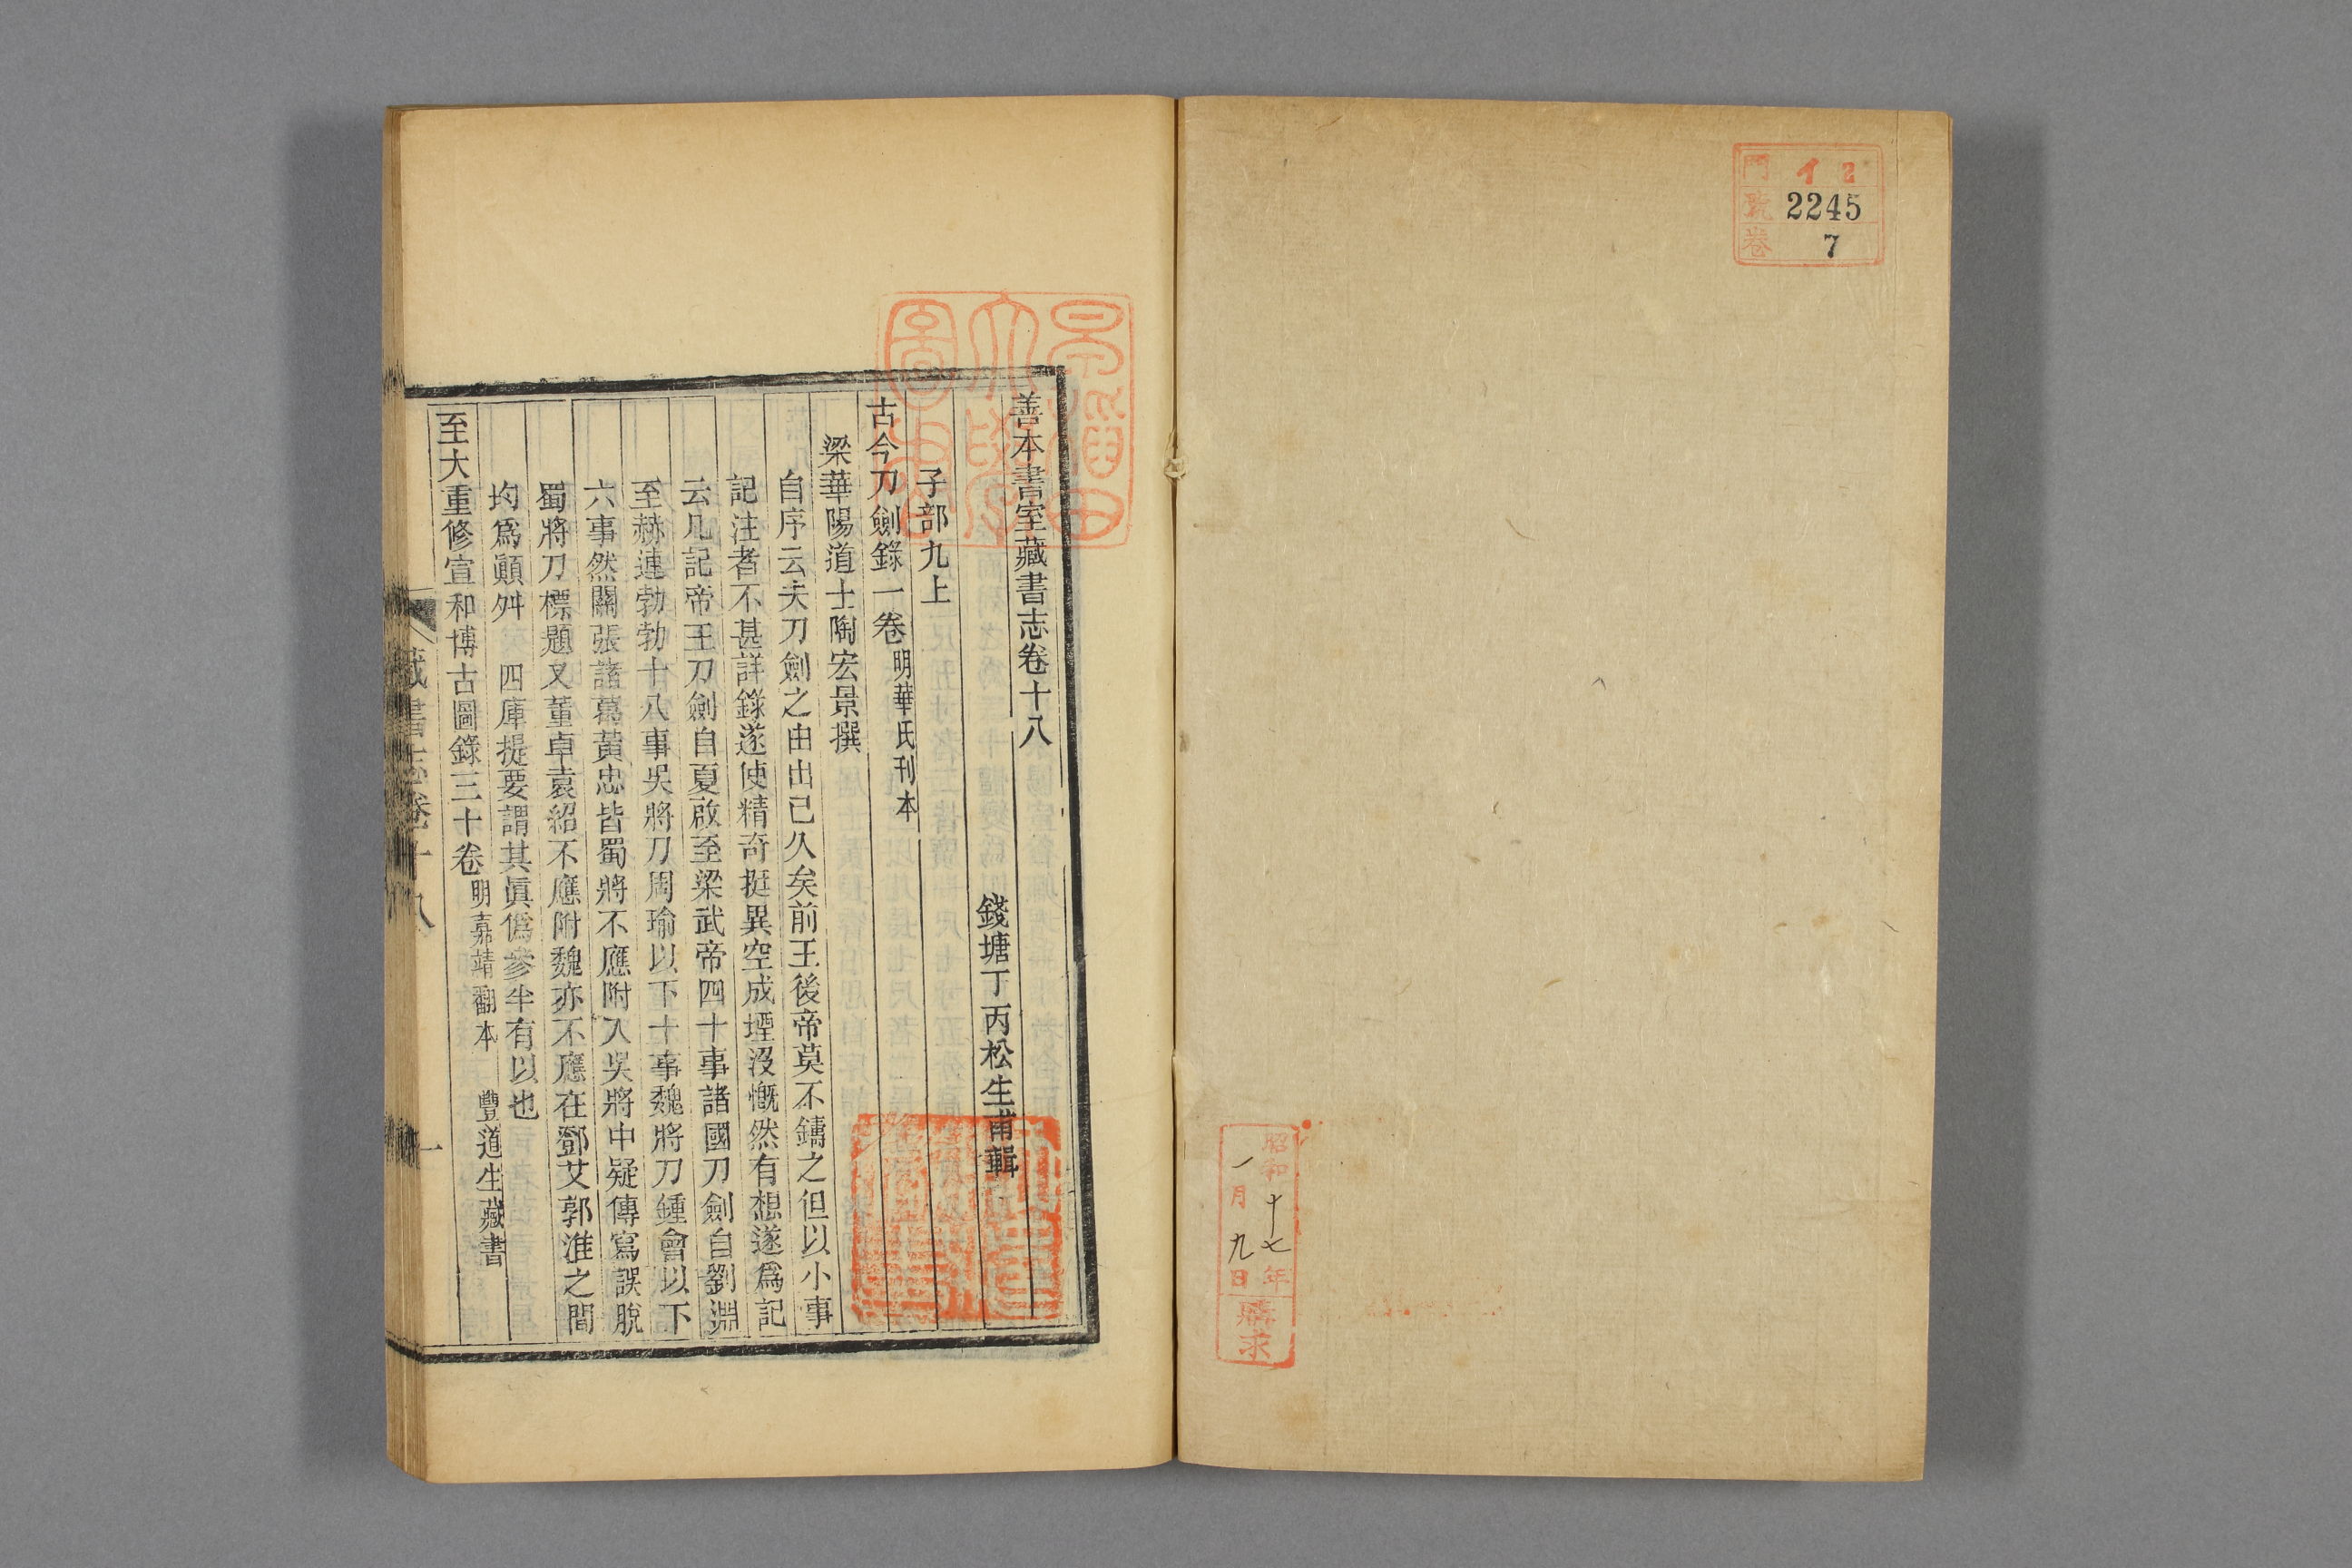 門 イ 2
號 2245
卷 7
昭和十七年
一月九日
購求
善本書室藏書志卷十八
錢塘丁丙松生甫輯
子部九上
古今刀劍錄一卷 明華氏刊本
梁華陽道士陶宏景撰
自序云夫刀劍之由出已久矣前王後帝莫不鑄之但以小事
記注者不甚詳錄遂使精奇挺異空成堙沒慨然有想遂爲記
云凡記帝王刀劍自夏啟至梁武帝四十事諸國刀劍自劉淵
至赫連勃勃十八事吳將刀周瑜以下十事魏將刀鍾會以下
六事然關張諸葛黃忠皆蜀將不應附入吳將中疑傳寫誤脫
蜀將刀標題又董卓袁紹不應附魏亦不應在鄧艾郭淮之間
均爲顚舛 四庫提要謂其眞僞參半有以也
至大重修宣和博古圖錄三十卷 明嘉靖翻本 豐道生藏書
藏書志卷十八 一